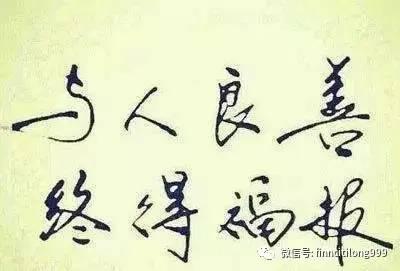 与人良善
终得福报
微信号: finnditilong999